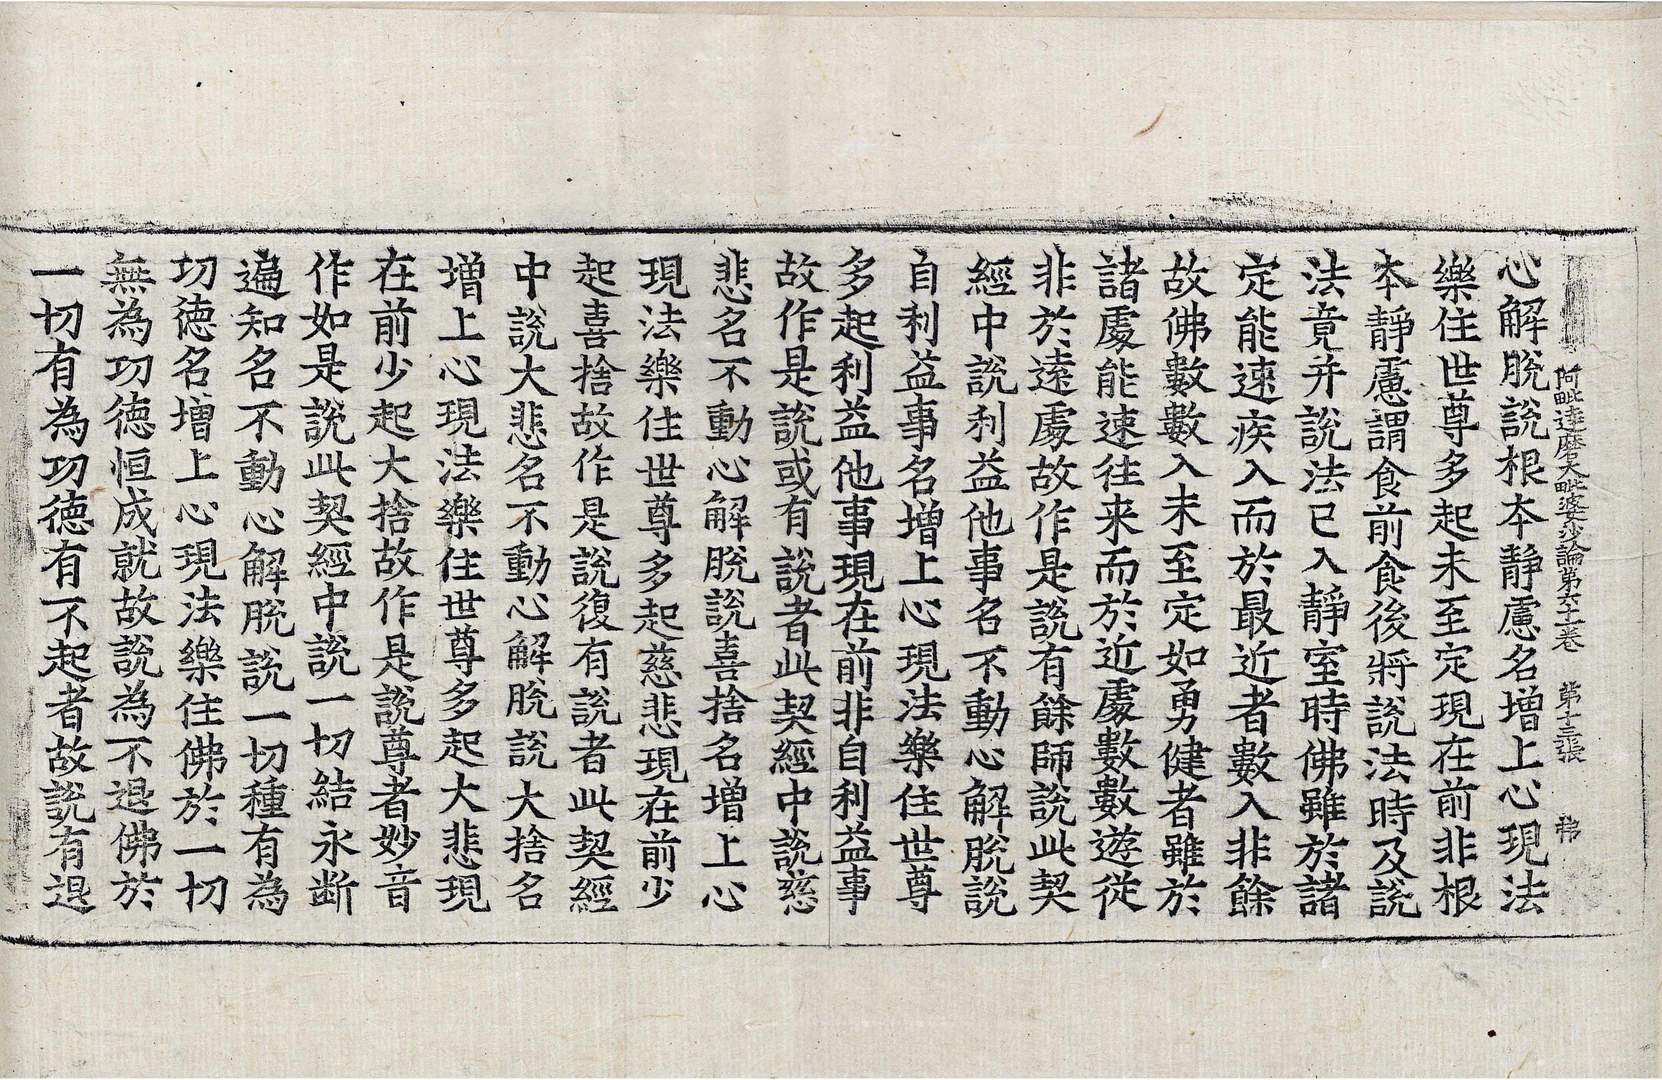 阿毗達磨大毗婆沙論第六十一卷　第十三張　弗
心解脫說根本靜慮名增上心現法
樂住世尊多起未至定現在前非根
本靜慮謂食前食後將說法時及說
法竟并說法已入靜室時佛雖於諸
定能速疾入而於最近者數入非餘
故佛數數入未至定如勇健者雖於
諸處能速往来而於近處數數遊從
非於遠處故作是說有餘師說此契
經中說利益他事名不動心解脫說
自利益事名增上心現法樂住世尊
多起利益他事現在前非自利益事
故作是說或有說者此契經中說慈
悲名不動心解脫說喜捨名增上心
現法樂住世尊多起慈悲現在前少
起喜捨故作是說復有說者此契經
中說大悲名不動心解脫說大捨名
增上心現法樂住世尊多起大悲現
在前少起大捨故作是說尊者妙音
作如是說此契經中說一切結永斷
遍知名不動心解脫說一切種有為
功德名增上心現法樂住佛於一切
無為功德恒成就故說為不退佛於
一切有為功德有不起者故說有退